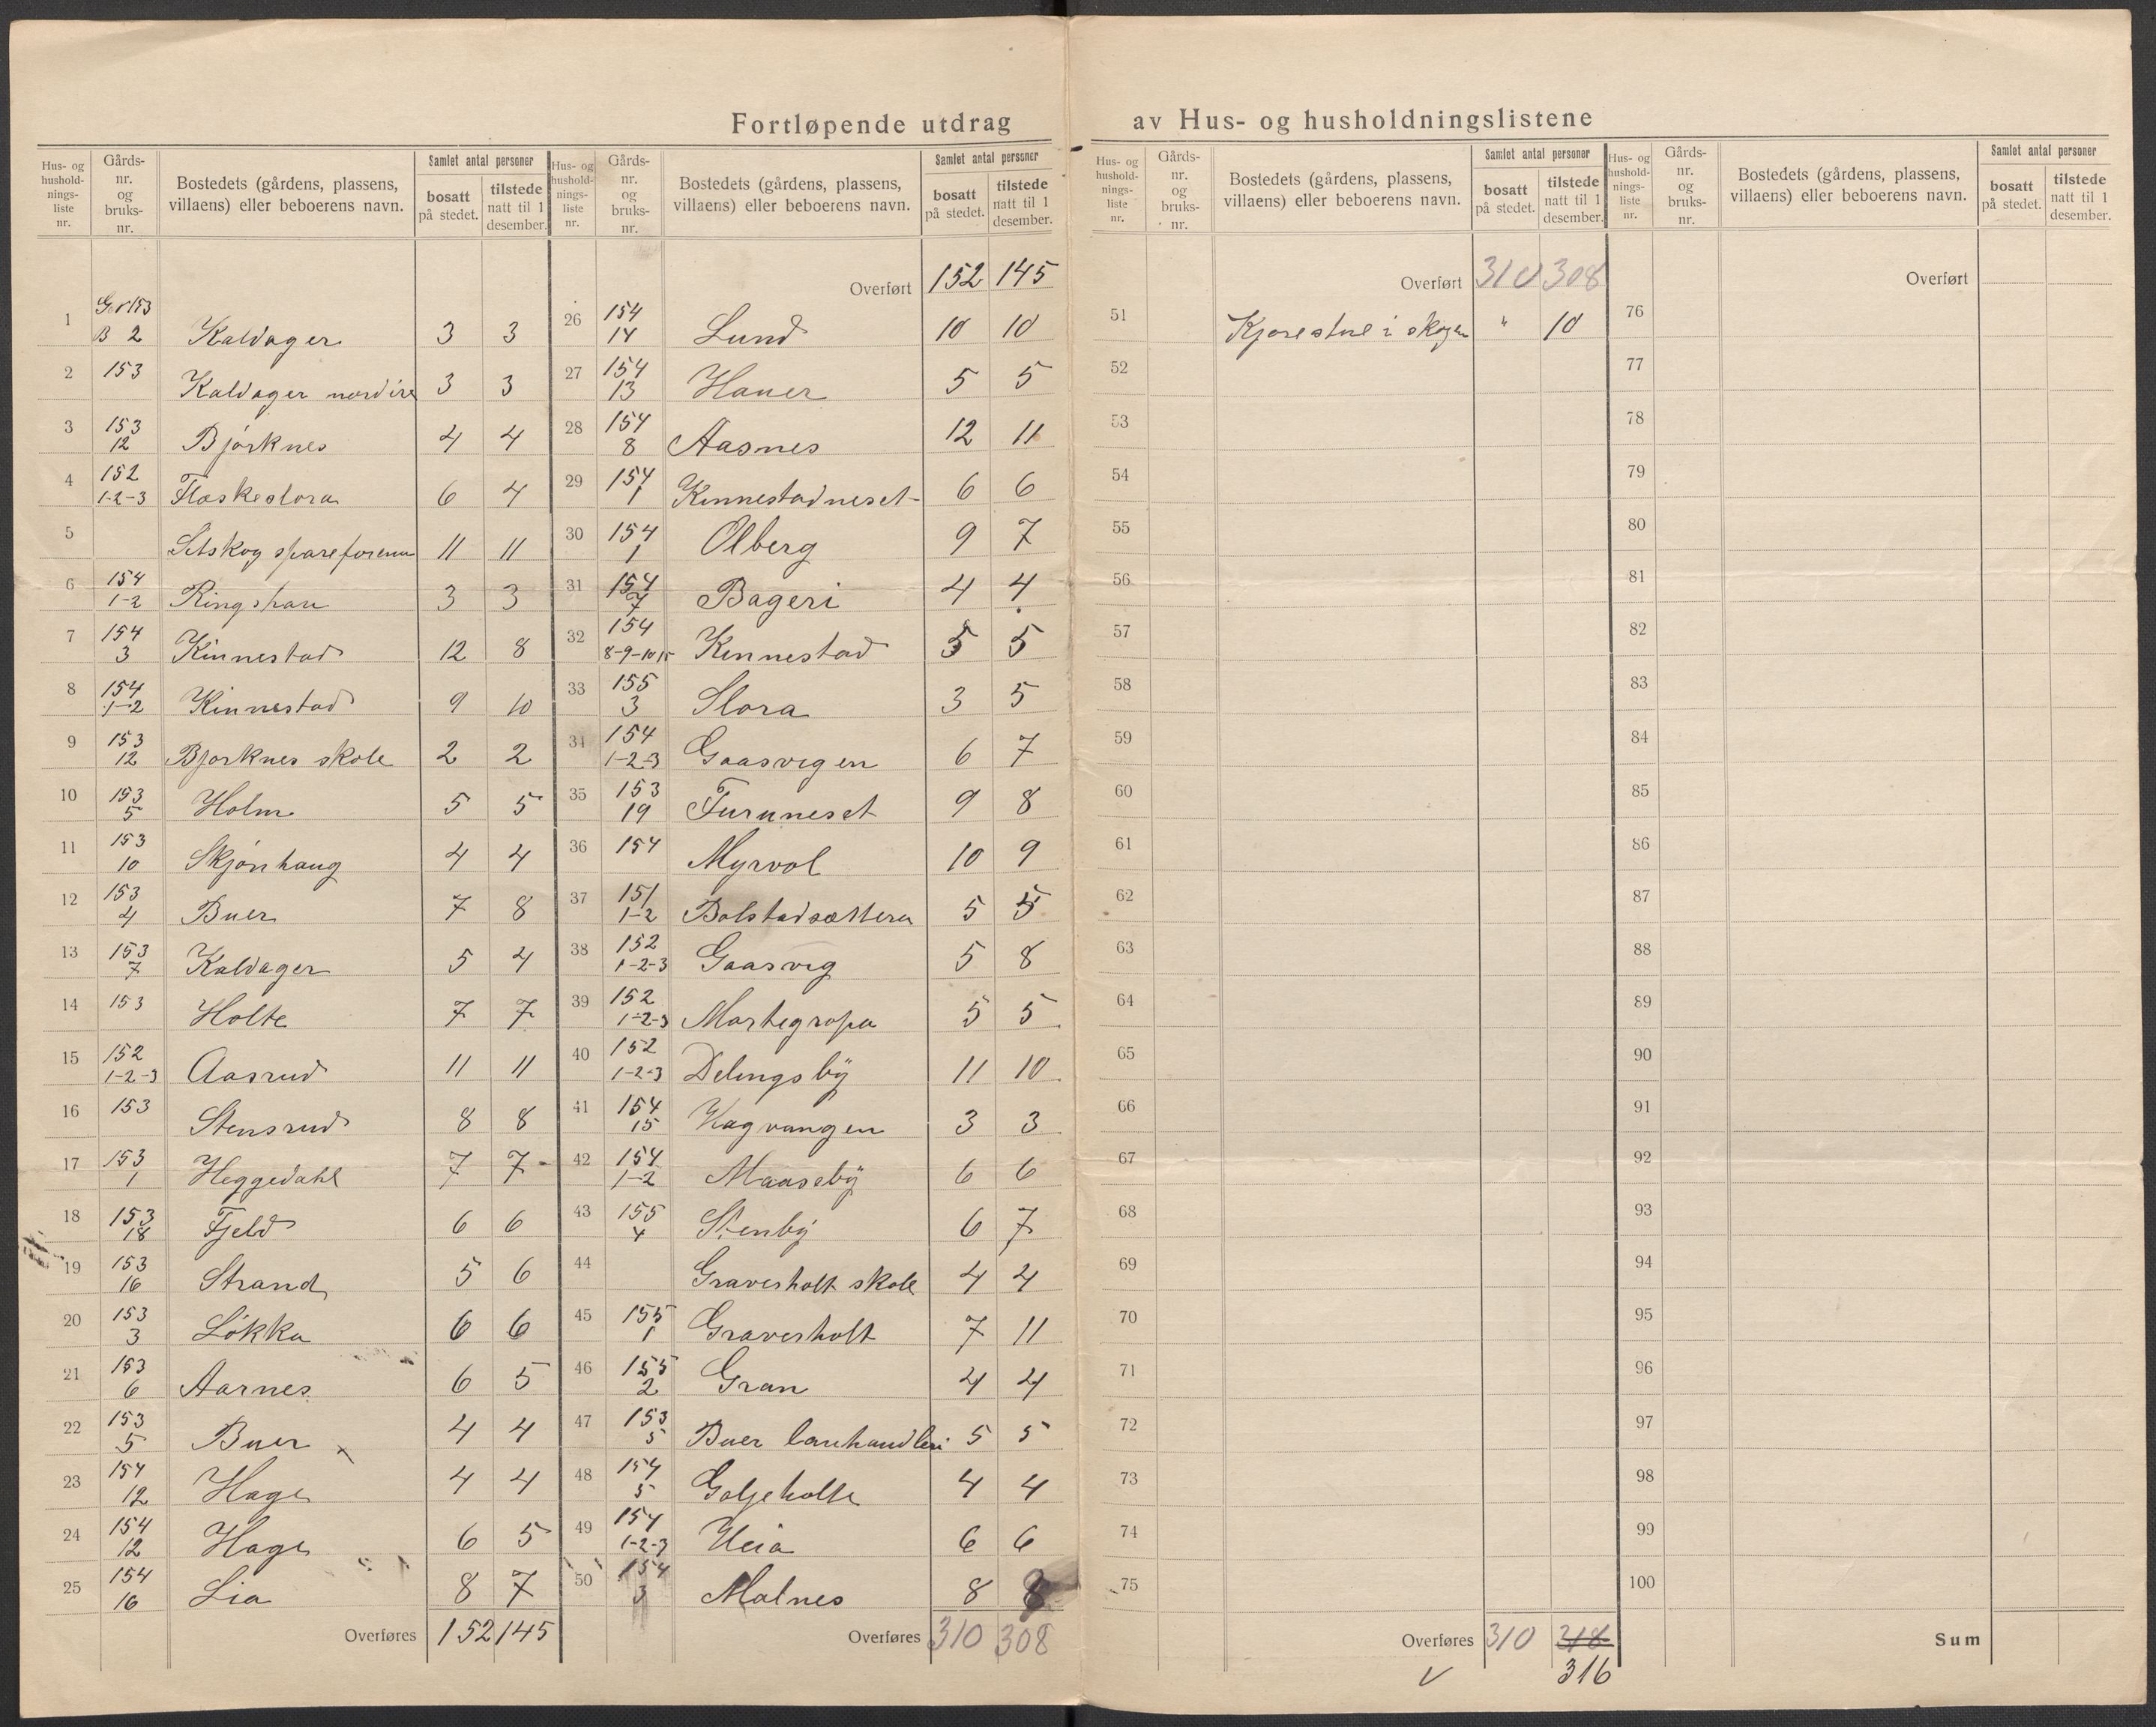 Fortløpende utdrag av Hus- og husholdningslistene
Hus- og husholdnings-liste nr. | Gårds-nr. og bruks-nr. | Bostedets (gårdens, plassens, villaens) eller beboerens navn. | Samlet antal personer | bosatt på stedet. | tilstede natt til 1 desember.
1 | G.nr 153 B 2 | Kaldager | 3 | 3
2 | 153 | Kaldager nordire | 3 | 3
3 | 153 12 | Bjørknes | 4 | 4
4 | 152 1-2-3 | Flaskeslora | 6 | 4
5 | Setskog spareforenin | 11 | 11
6 | 154 1-2 | Ringshau | 3 | 3
7 | 154 3 | Kinnestad | 12 | 8
8 | 154 1-2 | Kinnestad | 9 | 10
9 | 153 12 | Bjorknes skole | 2 | 2
10 | 153 5 | Holm | 5 | 5
11 | 153 10 | Skjønhaug | 4 | 4
12 | 153 4 | Buer | 7 | 8
13 | 153 7 | Kaldager | 5 | 4
14 | 153 | Holte | 7 | 7
15 | 152 1-2-3 | Aasrud | 11 | 11
16 | 153 | Stensrud | 8 | 8
17 | 153 1 | Heggedahl | 7 | 7
18 | 153 18 | Fjeld | 6 | 6
19 | 153 16 | Strand | 5 | 6
20 | 153 3 | Løkka | 6 | 6
21 | 153 6 | Aarnes | 6 | 5
22 | 153 5 | Buer x | 4 | 4
23 | 154 12 | Hage | 4 | 4
24 | 154 12 | Hage | 6 | 5
25 | 154 16 | Lia | 8 | 7
Overføres 152 145
Hus- og husholdnings-liste nr. | Gårds-nr. og bruks-nr. | Bostedets (gårdens, plassens, villaens) eller beboerens navn. | Samlet antal personer | bosatt på stedet. | tilstede natt til 1 desember.
Overført 152 145
26 | 154 14 | Lund | 10 | 10
27 | 154 13 | Hauer | 5 | 5
28 | 154 8 | Aasnes | 12 | 11
29 | 154 1 | Kinnestadneset | 6 | 6
30 | 154 1 | Olberg | 9 | 7
31 | 154 7 | Bageri | 4 | 4
32 | 154 8-9-10 15 | Kennestad | 5 | 5
33 | 155 3 | Slora | 3 | 5
34 | 154 1-2-3 | Gaasvigen | 6 | 7
35 | 153 19 | Furuneset | 9 | 8
36 | 154 | Myrvol | 10 | 9
37 | 151 1-2 | Bolstadsættern | 5 | 5
38 | 152 1-2-3 | Gaasvig | 5 | 8
39 | 152 1-2-3 | Martegropa | 5 | 5
40 | 152 1-2-3 | Delingsbÿ | 11 | 10
41 | 154 15 | Hagvangen | 3 | 3
42 | 154 1-2 | Maasebÿ | 6 | 6
43 | 155 4 | Stenbÿ | 6 | 7
44 | Graverholt skole | 4 | 4
45 | 155 1 | Graverholt | 7 | 11
46 | 155 2 | Gran | 4 | 4
47 | 153 5 | Buer lanhandleri | 5 | 5
48 | 154 5 | Goljeholte | 4 | 4
49 | 154 1-2-3 | Heia | 6 | 6
50 | 154 3 | Malnes | 8 | 8
Overføres 310 308
Hus- og husholdnings-liste nr. | Gårds-nr. og bruks-nr. | Bostedets (gårdens, plassens, villaens) eller beboerens navn. | Samlet antal personer | bosatt på stedet. | tilstede natt til 1 desember.
Overført 310 308
51 | Kjorestue i skogen | " | 10
52
53
54
55
56
57
58
59
60
61
62
63
64
65
66
67
68
69
70
71
72
73
74
75
Overføres 310 318
316
Hus- og husholdnings-liste nr. | Gårds-nr. og bruks-nr. | Bostedets (gårdens, plassens, villaens) eller beboerens navn. | Samlet antal personer | bosatt på stedet. | tilstede natt til 1 desember.
Overført
76
77
78
79
80
81
82
83
84
85
86
87
88
89
90
91
92
93
94
95
96
97
98
99
100
Sum